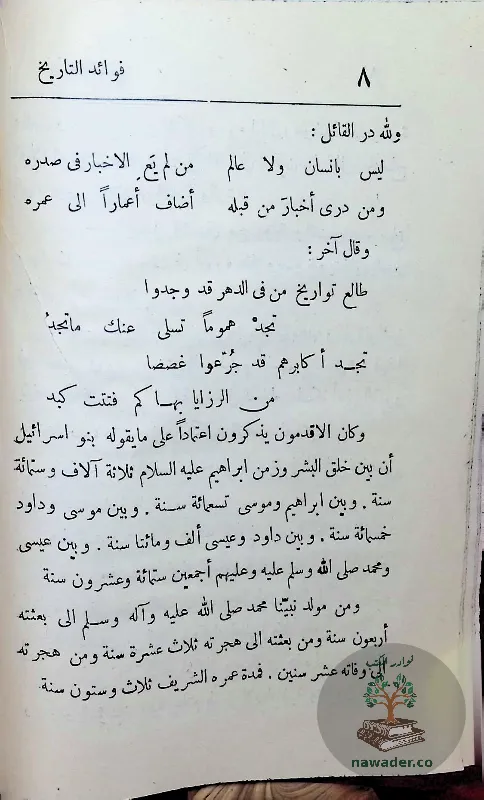 ٨ فوائد التاريخ
ولله در القائل :
ليس بانسان ولا عالم من لم يَع ِ الاخبار فى صدره
ومن درى أخبارَ من قبله أضاف أعماراً الى عمره
وقال آخر :
طالع تواريخ من فى الدهر قد وجدوا
تجدْ هموماً تسلى عنك ماتجدُ
تجد أكابرهم قد جُرّعوا غصصا
من الرزايا بها كم فتتت كبد
وكان الاقدمون يذكرون اعتماداً على مايقوله بنو اسرائيل
أن بين خلق البشر وزمن ابراهيم عليه السلام ثلاثة آلاف وستمائة
سنة . وبين ابراهيم وموسى تسعمائة سنة . وبين موسى وداود
خمسمائة سنة . وبين داود وعيسى ألف ومائتا سنة . وبين عيسى
ومحمد صلى الله وسلم عليه وعليهم أجمعين ستمائة وعشرون سنة
ومن مولد نبيّنا محمد صلى الله عليه وآله وسلم الى بعثته
أربعون سنة ومن بعثته الى هجرته ثلاث عشرة سنة ومن هجرته
الى وفاته عشر سنين . فمدة عمره الشريف ثلاث وستون سنة
نوادر الكتب
nawader.co